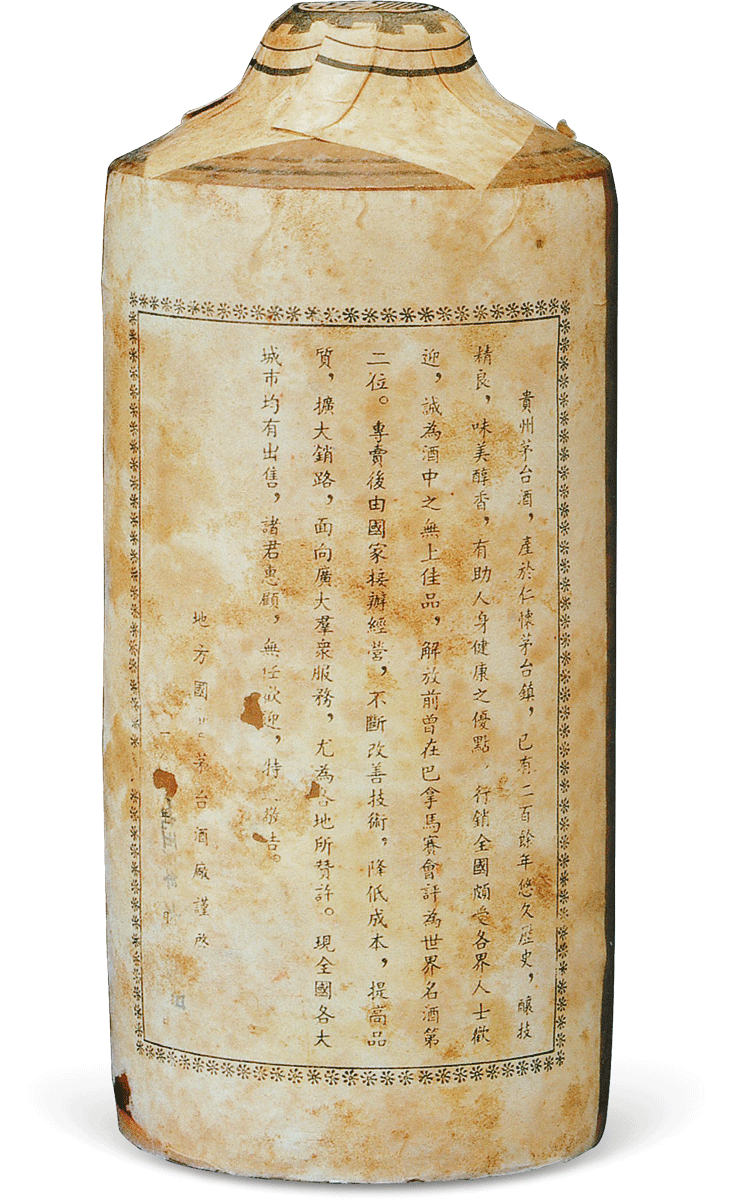 貴州茅台酒，產於仁懷茅台鎮，已有二百餘年悠久歷史，釀技
精良，味美醇香，有助人身健康之優點，行銷全國頗受各界人士歡
迎，誠為酒中之無上佳品，解放前曾在巴拿馬賽會評為世界名酒第
二位。專賣後由國家接辦經营，不斷改善技術，降低成本，提高品
質，擴大銷路，面向廣大羣衆服務，尤為各地所贊許。現全國各大
城市均有出售，諸君惠顧，無任歡迎，特敬告。
地方國茅台酒厰謹啟